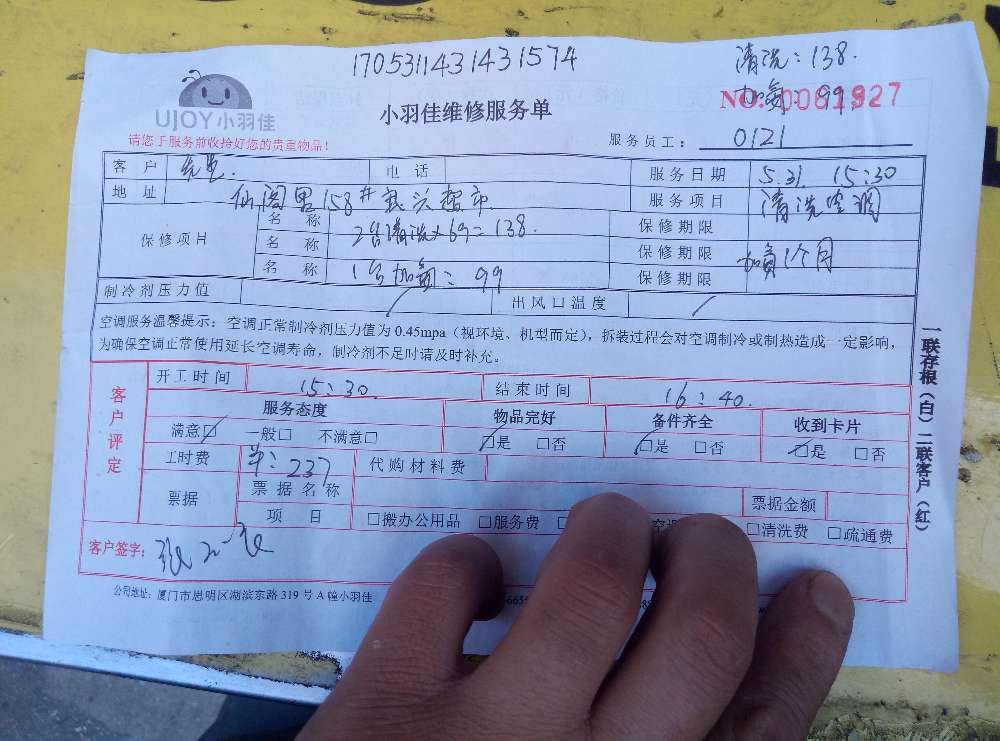 1705311431431574
清洗：138.
加氟：99
UJOY小羽佳
小羽佳维修服务单
NO. 0081927
请您于服务前收拾好您的贵重物品！
服务员工： 0121
客户 先生. 电话 服务日期 5.31. 15:30
地址 仙阁里158# 超市. 服务项目 清洗空调
保修项目 名称 2台清洗×69=138. 保修期限
名称 保修期限 加氟1个月
名称 1台加氟：99 保修期限
制冷剂压力值 出风口温度
空调服务温馨提示：空调正常制冷剂压力值为 0.45mpa（视环境、机型而定），拆装过程会对空调制冷或制热造成一定影响，
为确保空调正常使用延长空调寿命，制冷剂不足时请及时补充。
一联存根（白）二联客户（红）
客户评定
开工时间 15:30. 结束时间 16:40.
服务态度 物品完好 备件齐全 收到卡片
满意□ 一般□ 不满意□ □是 □否 □是 □否 □是 □否
工时费 单：237 代购材料费
票据 票据名称 票据金额
项目 □搬办公用品 □服务费 空调 □清洗费 □疏通费
客户签字：
公司地址：厦门市思明区湖滨东路 319 号 A 幢小羽佳